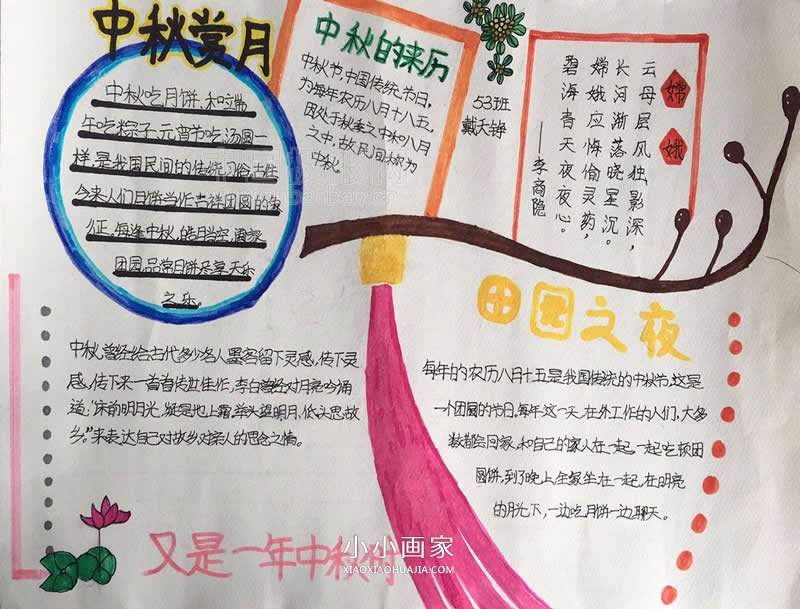 中秋赏月
中秋吃月饼,和端
午吃粽子、元宵节吃汤圆一
样,是我国民间的传统习俗,古往
今来人们月饼当作吉祥团圆的象
征,每逢中秋,皓月当空,阖家
团园品尝月饼尽享天乐
之乐。
中秋的来历
中秋节,中国传统节日,
为每年农历八月十八五,
因处于秋季之中和八月
之中,故民间称为
中秋。
53班
嫦娥
云母层风独影深,
长河渐落晓星沉。
嫦娥应悔偷灵药,
碧海青天夜夜心。
——李商隐
中秋,曾经给古代多少名人墨客留下灵感,传下灵
感,传下来一首首传世佳作,李白曾经对月亮吟诵
道:“床前明月光,疑是地上霜,举头望明月,低头思故
乡。”来表达自己对故乡对亲人的思念之情。
团圆之夜
每年的农历八月十五是我国传统的中秋节,这是
一个团圆的节日,每年这一天,在外工作的人们,大多
数都会回家,和自己的家人在一起,一起吃顿团
圆饼,到了晚上,全家坐在一起,在明亮
的月光下,一边吃月饼一边聊天。
又是一年中秋
小小画家
XIAOXIAOHUAJIA.COM